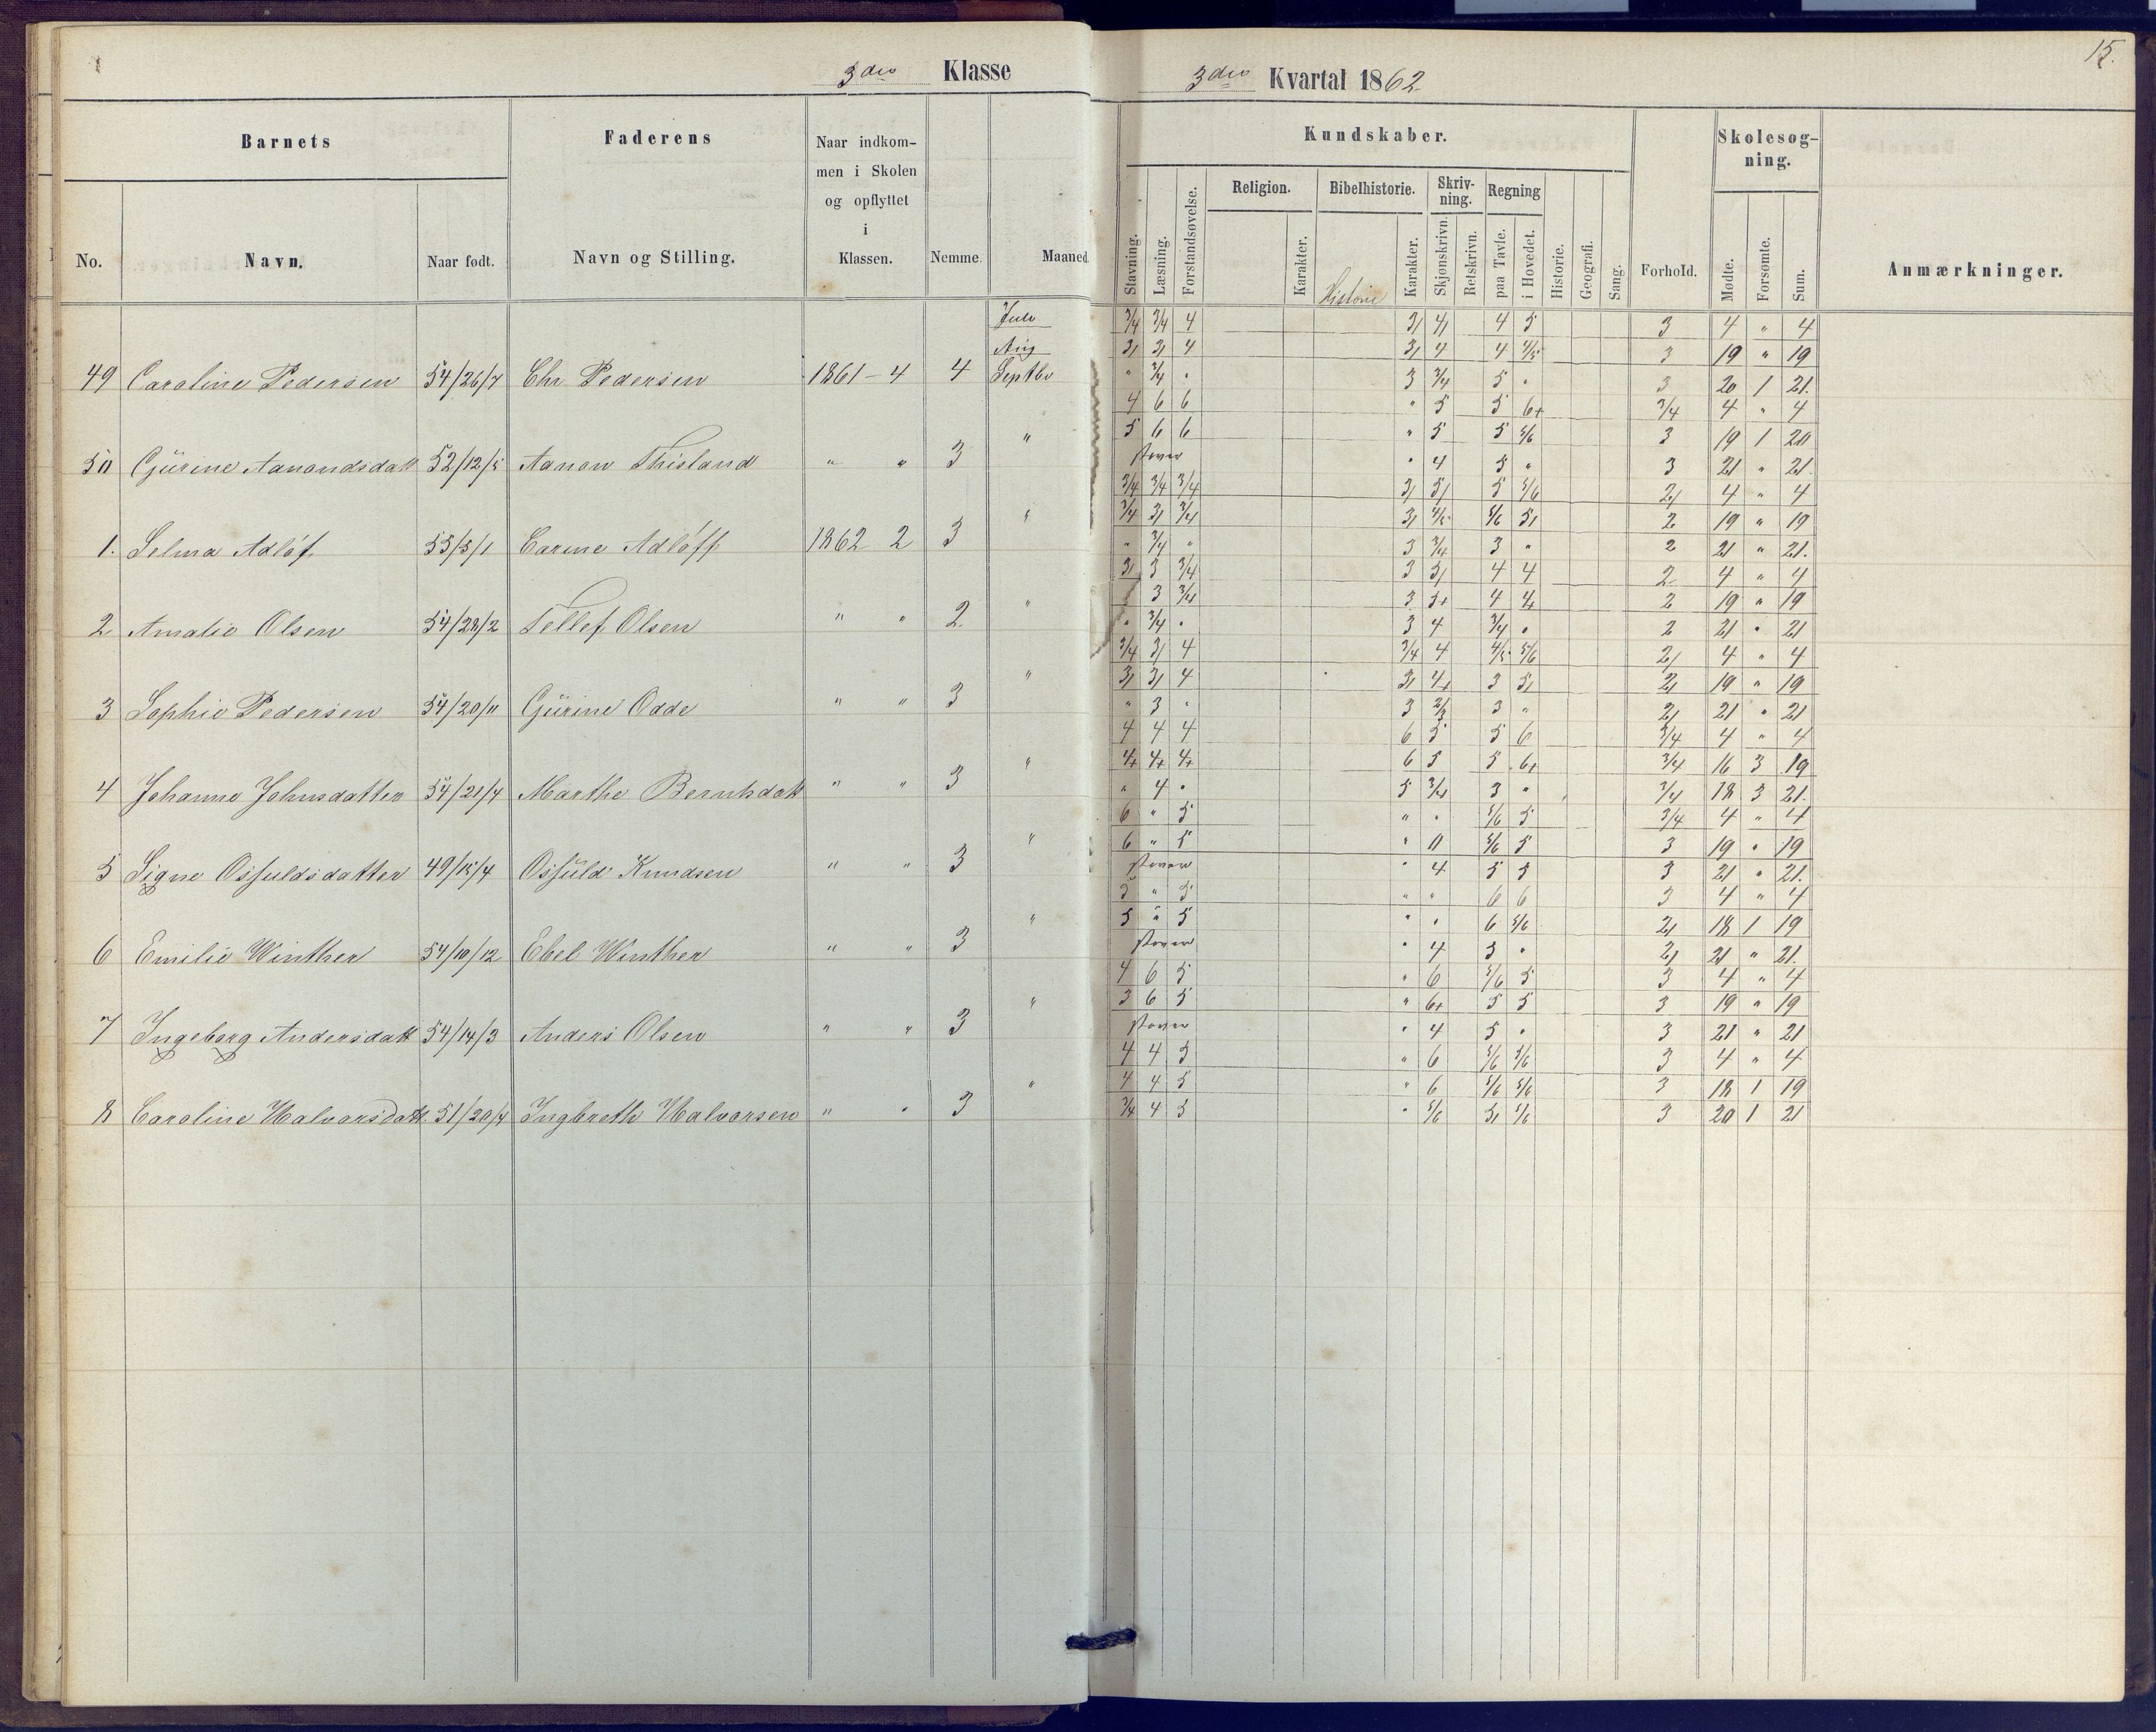 3die Klasse
3die Kvartal 1862
15.
Barnets
Faderens
Naar indkommen i Skolen og opflyttet i Klassen.
Nemme.
Maaned.
No.
Navn.
Naar født.
Navn og Stilling.
Kundskaber.
Stavning.
Læsning.
Forstandsøvelse.
Religion.
Karakter.
Bibelhistorie.
Historie
Karakter.
Skrivning.
Skjønskrivn.
Retskrivn.
Regning
paa Tavle.
i Hovedet.
Historie.
Geografi.
Sang.
Forhold.
Skolesogning.
Mødte.
Forsømte.
Sum.
Anmærkninger.
Juli 3/4 3/4 4 3/ 4/ 4 5 3 4 " 4
Aug 3/ 3/ 4 3/ 4 4 4/5 3 19 " 19
49 Caroline Pedersen 54/26/7 Chr Pedersen 1861-4 4 Septbr " 3/4 " 3 3/4 5 " 3 20 1 21.
4 6 6 " 5 5 6+ 3/4 4 " 4
" 5 6 6 " 5 5 5/6 3 19 1 20
50 Gürine Aanondsdatt 52/12/5 Aanon Thisland " " 3 " 4 5 " 3 21 " 21.
3/4 3/4 3/4 3/ 5/ 5 5/6 2/ 4 " 4
" 3/4 3/ 3/4 3/ 4/5 5/6 5/ 2 19 " 19
1. Selma Adlöf 53/5/1 Carine Adlöff 1862 2 3 " 3/4 " 3 3/4 3 " 2 21 " 21.
3/ 3 3/4 3 3/ 4 4 2 4 " 4
" 3 3/4 3 3+ 4 4+ 2 19 " 19
2 Amalie Olsen 54/28/2 Tellef Olsen " " 2 " 3/4 " 3 4 3/4 " 2 21 " 21
3/4 3/ 4 3/4 4 4/5 5/6 2/ 4 " 4
" 3/ 3/ 4 3/ 4+ 3 5/ 2/ 19 " 19
3 Sophie Pedersen 54/20/11 Gürine Odde " " 3 " 3 " 3 2/3 3 " 2/ 21 " 21
4 4 4 6 5 5 6 3/4 4 " 4
" 4+ 4+ 4+ 6 5 5 6+ 3/4 16 3 19
4 Johanne Johnsdatter 54/21/4 Marthe Berntsdatt " " 3 " 4 " 5 3/4 3 " 3/4 18 3 21.
6 " 5 " " 5/6 5 3/4 4 " 4
" 6 " 5 " 0 5/6 5 3 19 " 19
5 Signe Osfuldsdatter 49/15/4 Osfuld Knudsen " " 3 " 4 5 5 3 21 " 21.
5 " 5 " " 6 6 3 4 " 4
" 5 " 5 " " 6 5/6 2/ 18 1 19
6 Emilie Winther 54/10/12 Ebel Winther " " 3 " 4 3 " 2/ 21 " 21.
4 6 5 " 6 5/6 5 3 4 " 4
" 3 6 5 " 6+ 5 5 3 19 " 19
7 Ingeborg Andersdatt 54/14/3 Anders Olsen " " 3 " 4 5 " 3 21 " 21
4 4 5 " 6 5/6 5/6 3 4 " 4
" 4 4 5 " 6 5/6 5/6 3 18 1 19
8 Caroline Halvorsdatt. 51/20/4 Ingbreth Halvorsen " " 3 3/4 4 5 " 5/6 5/ 5/6 3 20 1 21